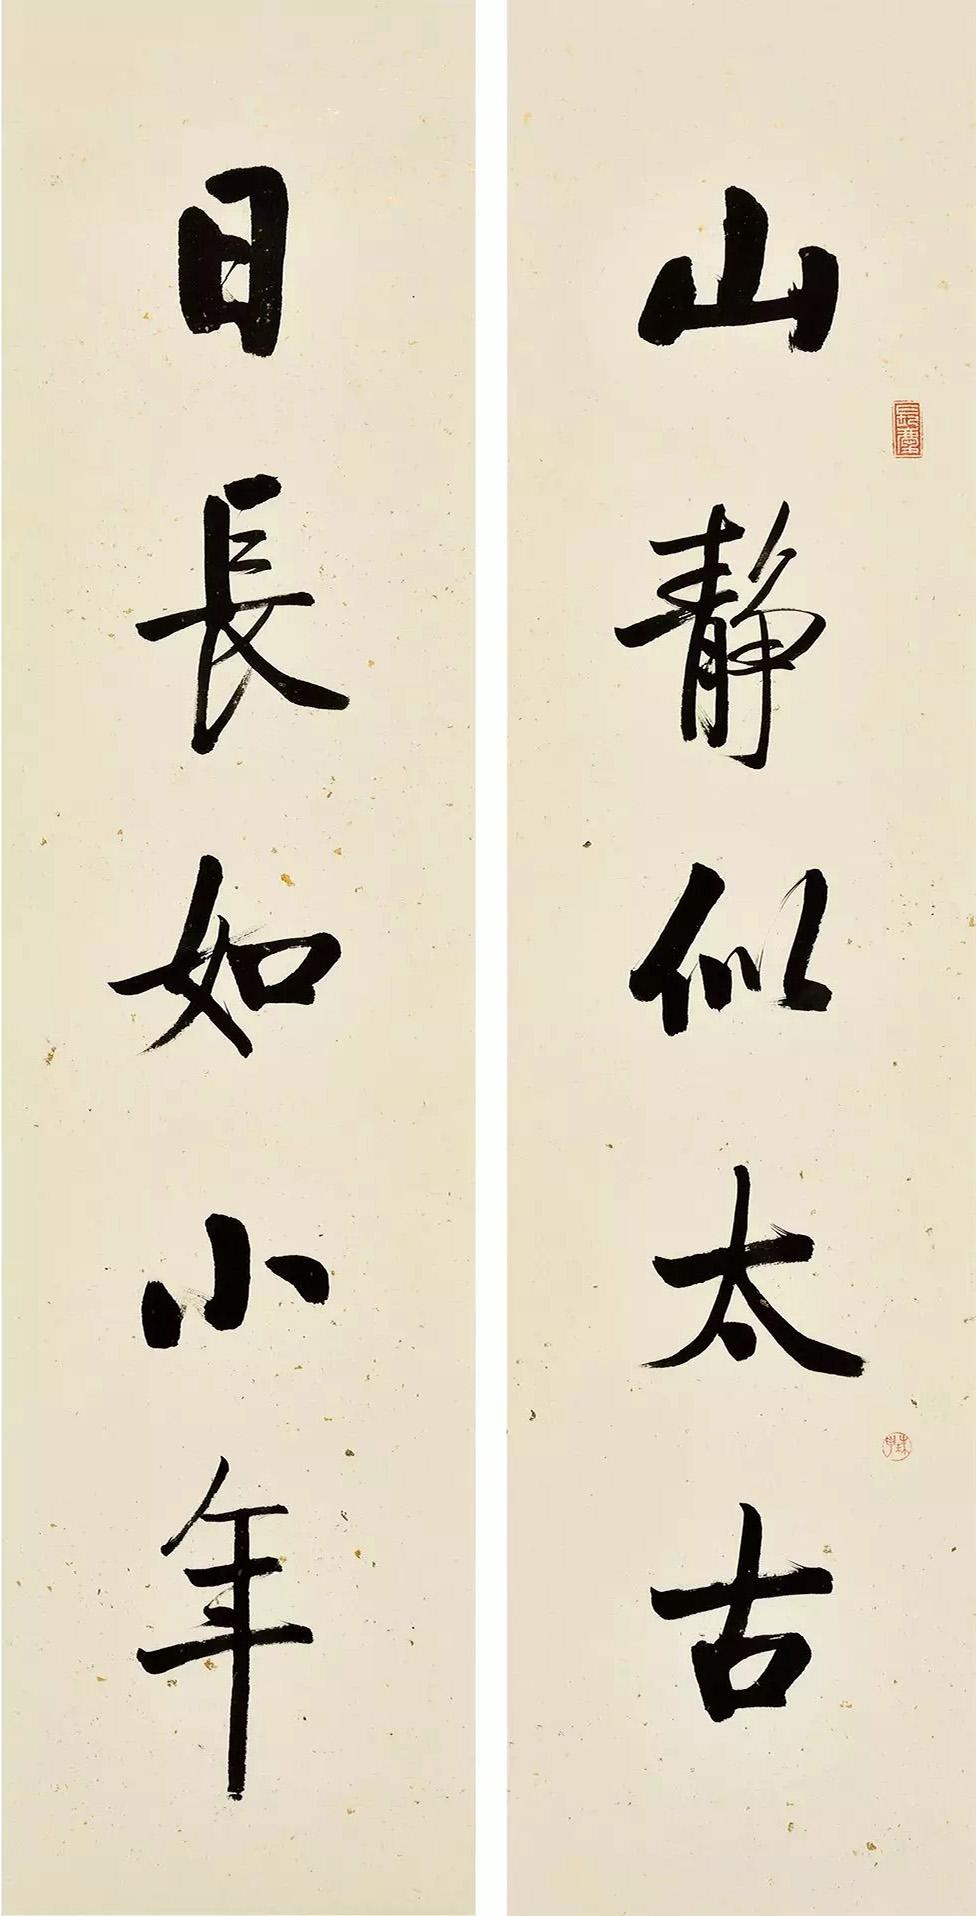 山靜似太古
日長如小年